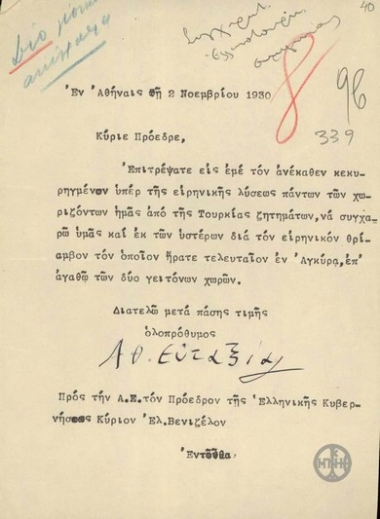 δύο μόνον
40
Ἐν Ἀθήναις τῇ 2 Νοεμβρίου 1930
8
96
339
Κύριε Πρόεδρε,
Ἐπιτρέψατε εἰς ἐμέ τόν ἀνέκαθεν κεκυ-
ρηγμένον ὑπέρ τῆς εἰρηνικῆς λύσεως πάντων τῶν χω-
ριζόντων ἡμᾶς ἀπό τῆς Τουρκίας ζητημάτων, νά συγχα-
ρῶ ὑμᾶς καί ἐκ τῶν ὑστέρων διά τόν εἰρηνικόν θρί-
αμβον τόν ὁποῖον ἤρατε τελευταῖον ἐν Ἀγκύρα, ἐπ'
ἀγαθῶ τῶν δύο γειτόνων χωρῶν.
Διατελῶ μετά πάσης τιμῆς
ὁλοπρόθυμος
Ἀθ. Εὐταξίας
Πρός τήν Α.Ε. τόν Πρόεδρον τῆς Ἑλληνικῆς Κυβερ-
νήσεως Κύριον Ἐλ. Βενιζέλον
Ἐνταῦθα.